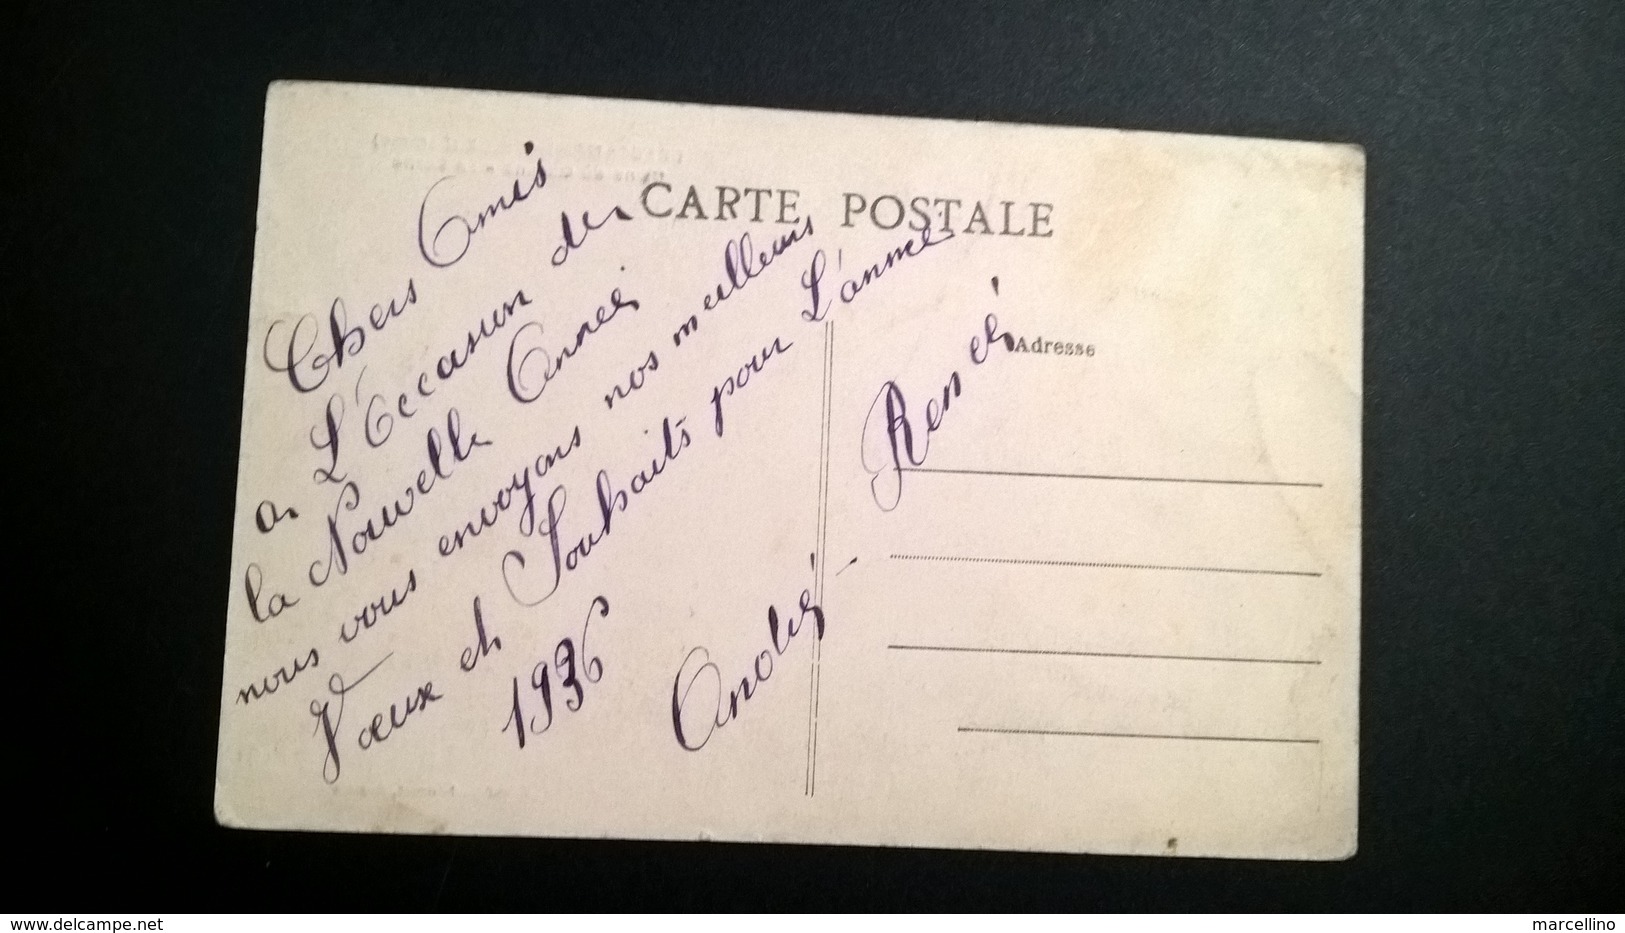 CARTE POSTALE
Adresse
Chers Amis
a L'Occasion de
la Nouvelle Année
nous vous envoyons nos meilleurs
Vœux et Souhaits pour L'année
1936
André - René
delcampe.net
marcellino